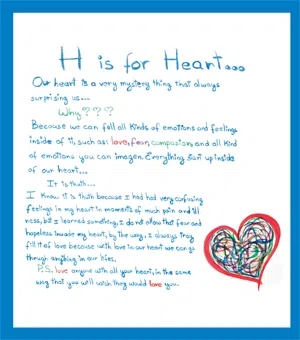 H is for Heart...
Our heart is a very mystery thing that always
surprising us...
Why???
Because we can fell all kinds of emotions and feelings
inside of it, such as: love, fear, compasion, and all kind
of emotions you can imagen. Everything isn't up inside
of our heart...
It is thuth...
I know it is thuth because I had had very confusing
feelings in my heart in moments of much pain and ill
ness, but I learned something, I do not allow that fear and
hopeless invade my heart, by the way, I always tray
fill it of love because with love in our heart we can go
through anything in our lifes.
P.S. love anyone with all your heart, in the same
way that you will watch they would love you.